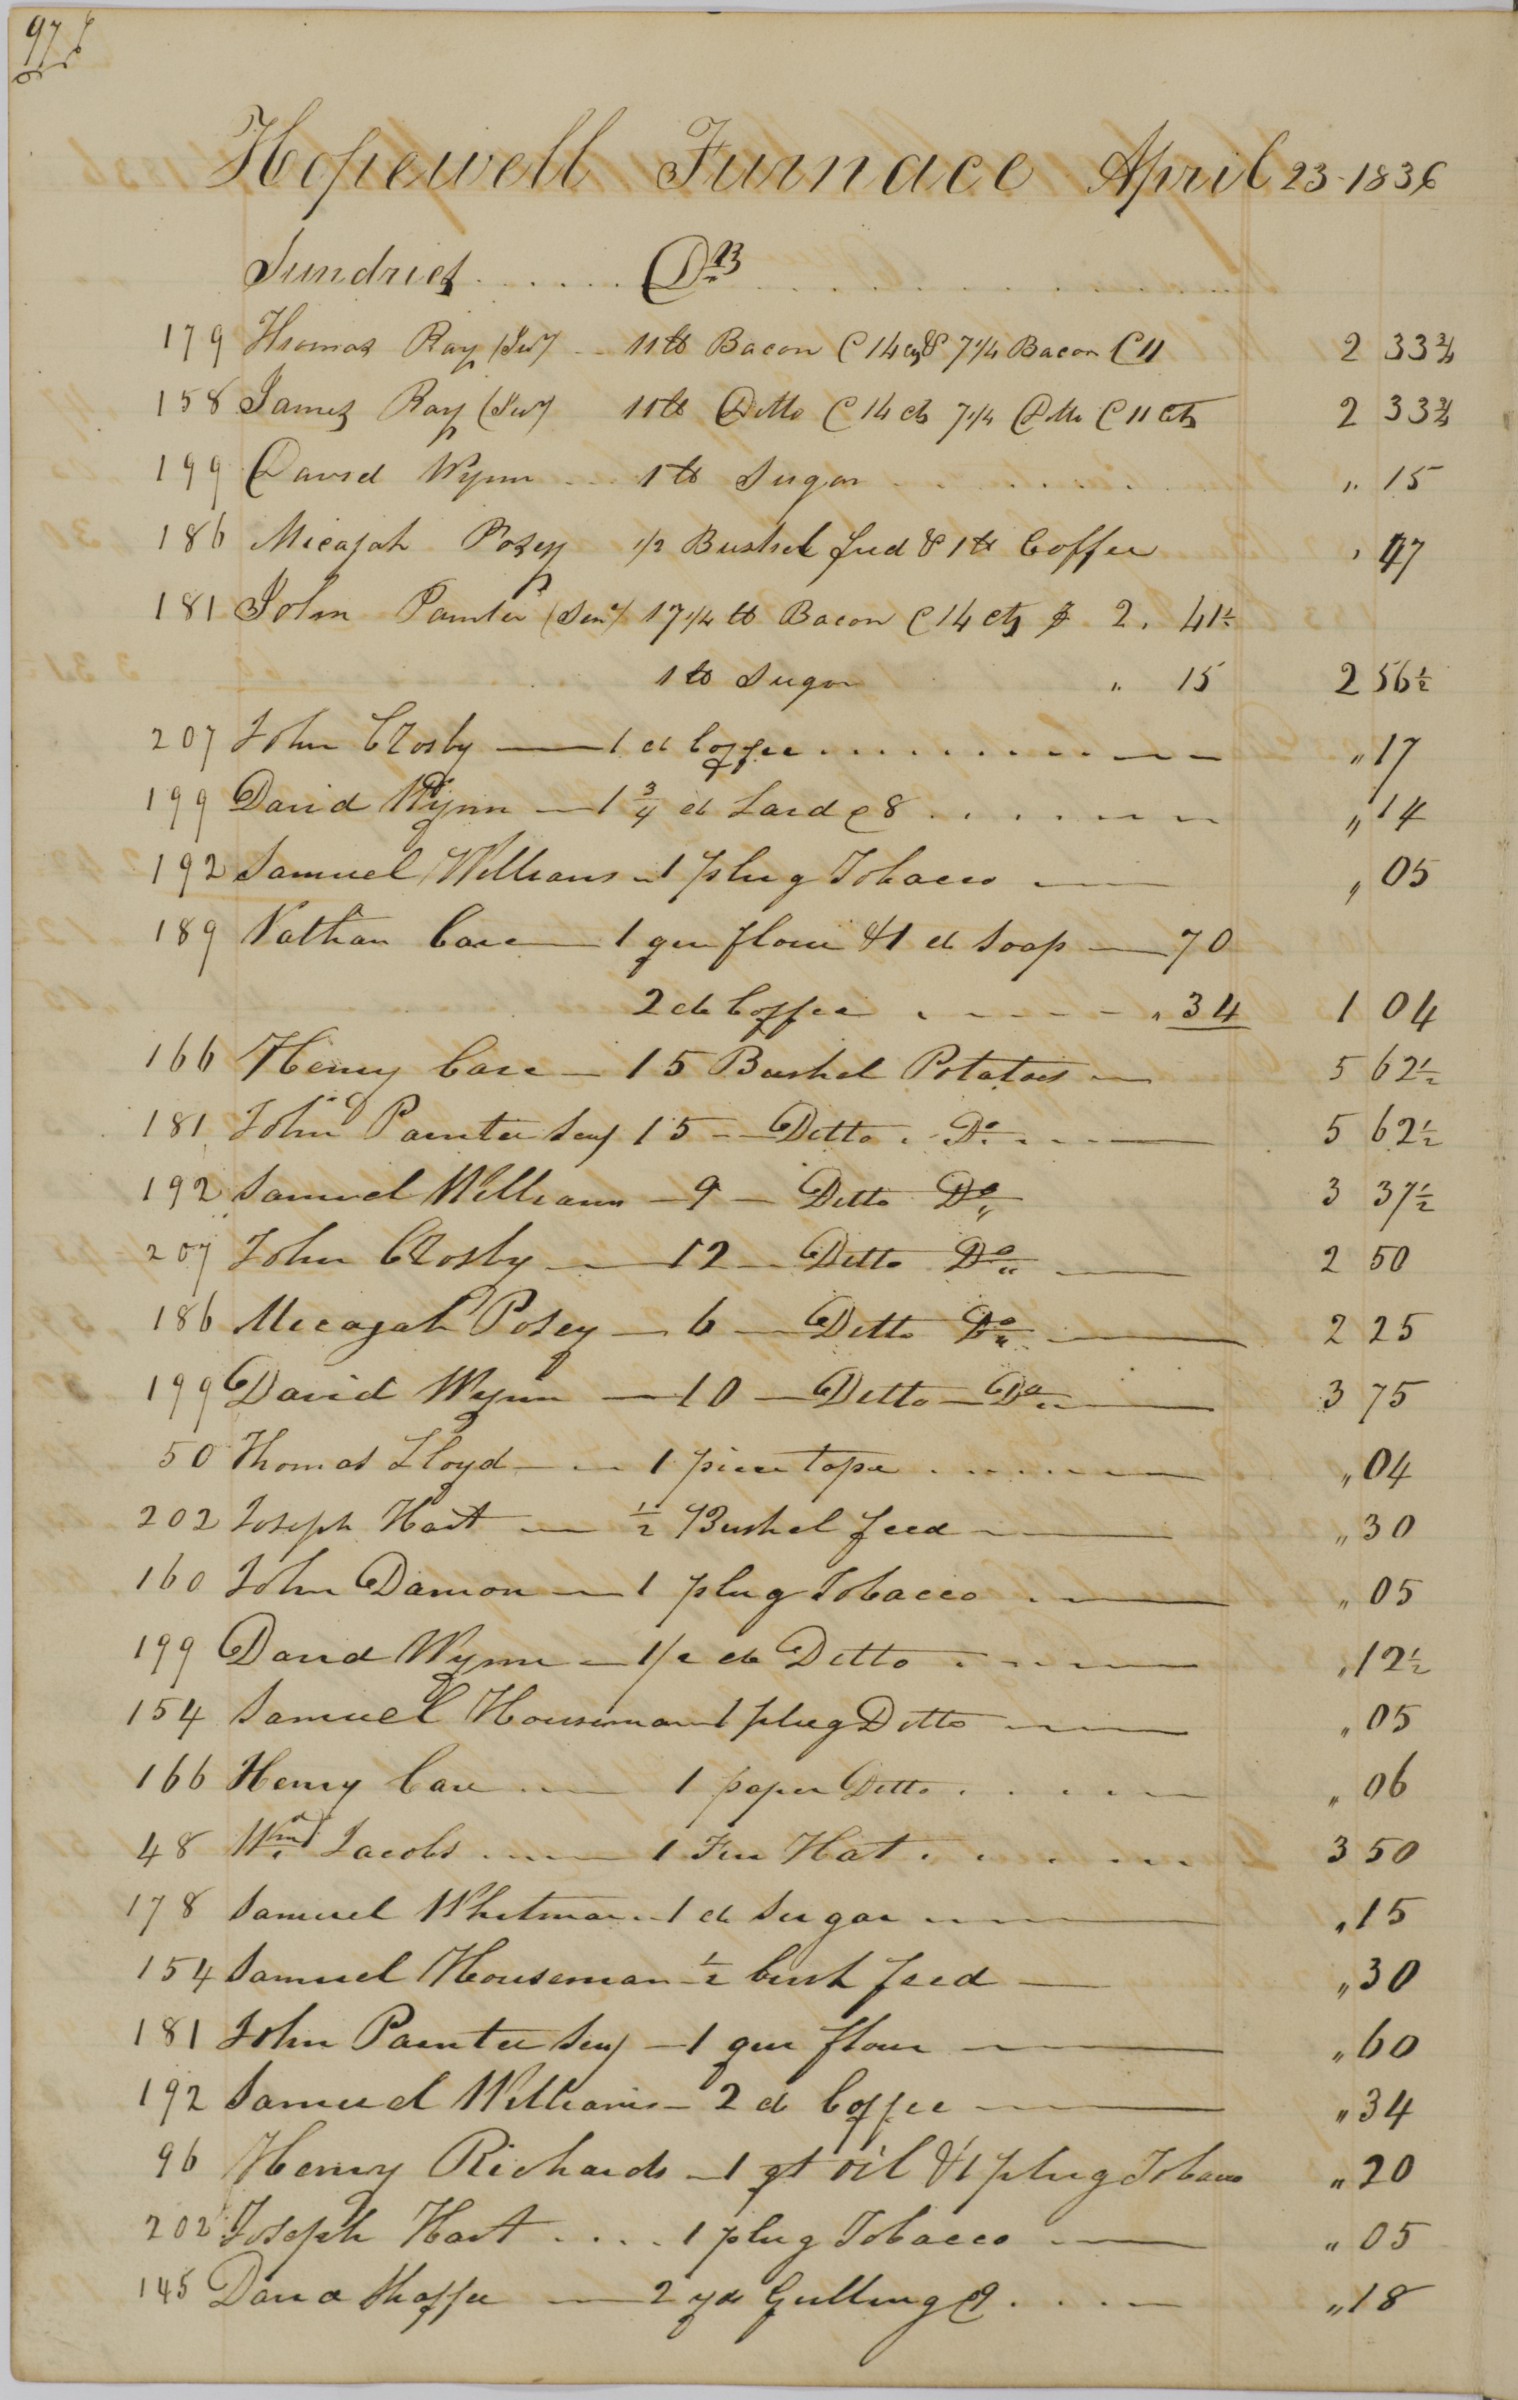 97
Hopewell Furnace April 23-1836
Sundries ...... Drs
179 Thomas Ray (Senr) .. 11 lb Bacon @ 14 cts & 7 1/4 Bacon @ 11 2 33 3/4
158 James Ray (Senr) 11 lb Ditto @ 14 cts 7 1/4 Ditto @ 11 Cts 2 33 3/4
199 David Wynn ... 1 lb Sugar ....... „ 15
186 Micajah Posey 1/2 Bushel feed & 1 lb Coffee „ 47
181 John Painter (Senr) 17 1/4 lb Bacon @ 14 cts $ 2. 41 1/2
1 lb Sugar „ 15 2 56 1/2
207 John Crosby — 1 lb Coffee ........ „ 17
199 David Wynn — 1 3/4 lb Lard @ 8 ..... „ 14
192 Samuel Williams — 1 plug Tobacco — „ 05
189 Nathan Care — 1 qr flour & 1 lb Soap — 70
2 lb Coffee ..... „ 34 1 04
166 Henry Care — 15 Bushel Potatoes — 5 62 1/2
181 John Painter Senr 15 — Ditto . Do. .. — 5 62 1/2
192 Samuel Williams — 9 — Ditto Do „ 3 37 1/2
207 John Crosby — 12 — Ditto Do „ — 2 50
186 Micajah Posey — 6 — Ditto Do „ — 2 25
199 David Wynn — 10 — Ditto — Do „ — 3 75
50 Thomas Lloyd — 1 piece tape ...... „ 04
202 Joseph Hart — 1/2 Bushel feed — „ 30
160 John Damon — 1 plug Tobacco . — „ 05
199 David Wynn — 1/2 lb Ditto .... „ 12 1/2
154 Samuel Houseman 1 plug Ditto — „ 05
166 Henry Care .. — 1 paper Ditto ..... „ 06
48 Wm Jacobs .... — 1 Fur Hat ...... 3 50
178 Samuel Whitman . 1 lb Sugar — „ 15
154 Samuel Houseman 1/2 bush feed — „ 30
181 John Painter Senr — 1 qr flour — „ 60
192 Samuel Williams — 2 lb Coffee — „ 34
96 Henry Richards — 1 qt oil & 1 plug Tobacco „ 20
202 Joseph Hart .... 1 plug Tobacco — „ 05
145 David Shaffer — 2 yds @ 9 .... „ 18